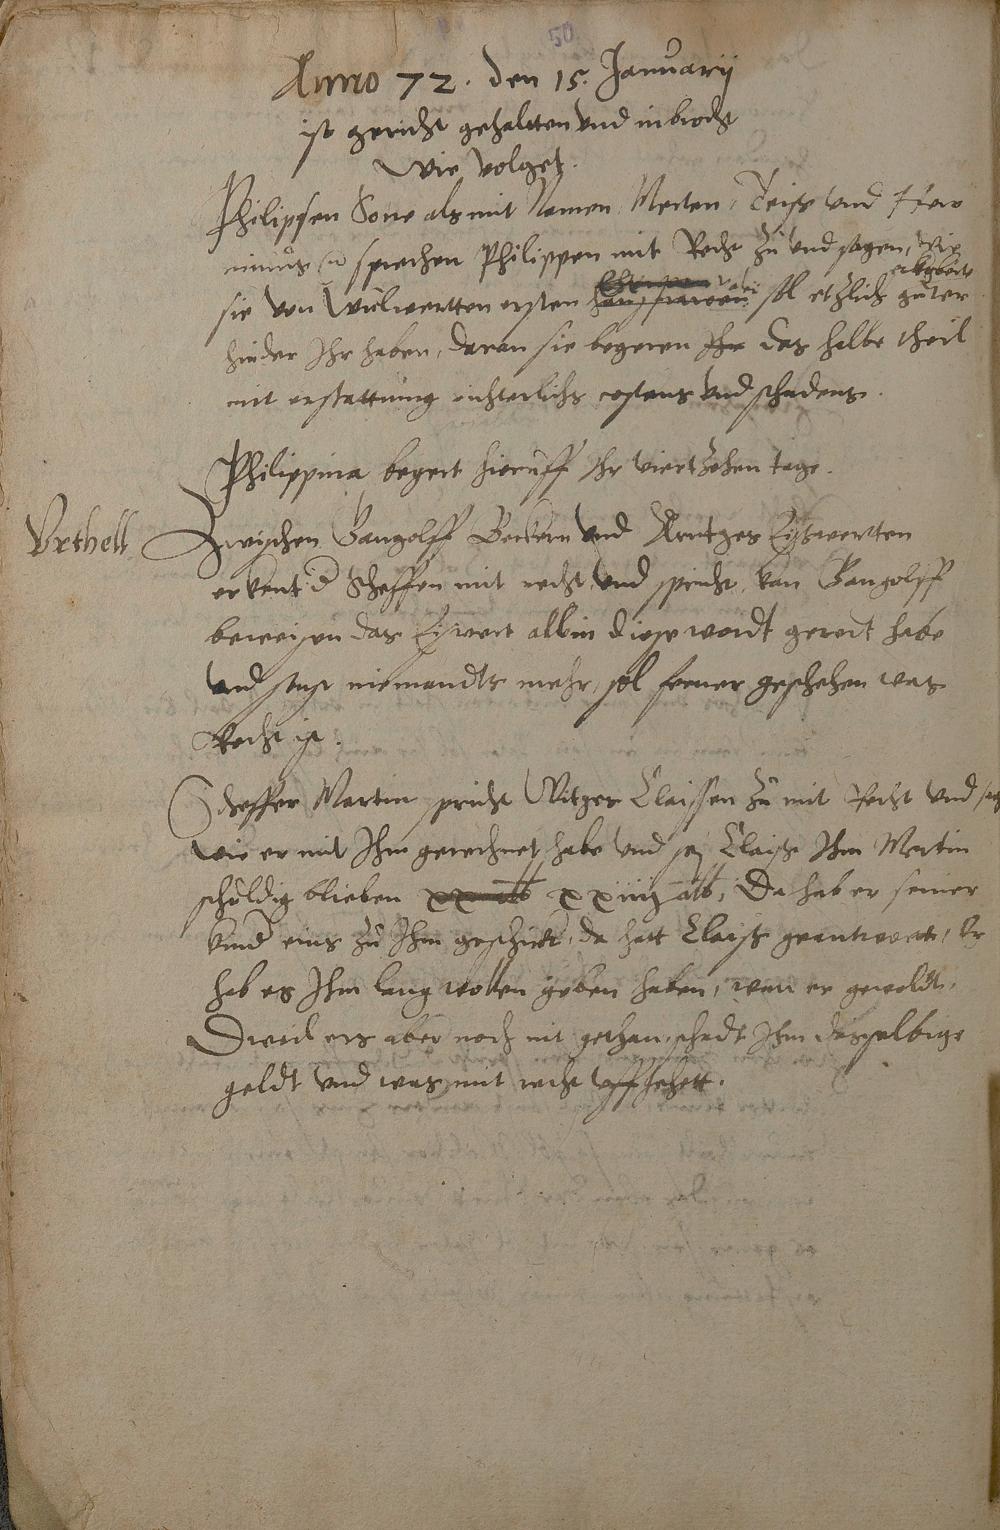 50
Anno 72. den 15. Januarij
ist gericht gehaltten und inbrocht
wie volget.
Philipsen Sone als mit Namen Merten, Teiss und Hiero
nimus sprechen Philippen mit Recht zu und sagen, wie
ackgbarte
sie von Wulwertten ersten hausfrawen sol etzlich guter
hinder Ihr haben, daran sie begeren Ihr das halbe theil
mit erstattung richterlichs costens und schadens.
Philippina begert hieruff Ihr viertzehen tage.
Urthell
Zwischen Gangolff Beckern und Arntges Eisswertten
erkent d Scheffen mit recht und spricht, kan Gangolff
beweisen das Eiswert allein diese wordt geredt habe
und sonst niemandts mehr, sol ferner geschehen was
Recht ist.
Scheffer Martin spricht Witges Claissen zu mit Recht und sag
wie er mit Ihm gerechnet habe und sej Claiss Ihm Martin
schuldig blieben xx alb xxiiij alb, Da hab er seiner
kind eins zu Ihm geschickt, da hatt Claiss geantwortt, Er
hab es Ihm lang wollen geben haben, wan er gewoldt,
Dweil ers aber noch nit gethan, schadt Ihm dasselbige
geldt und was mit recht uffgehett.